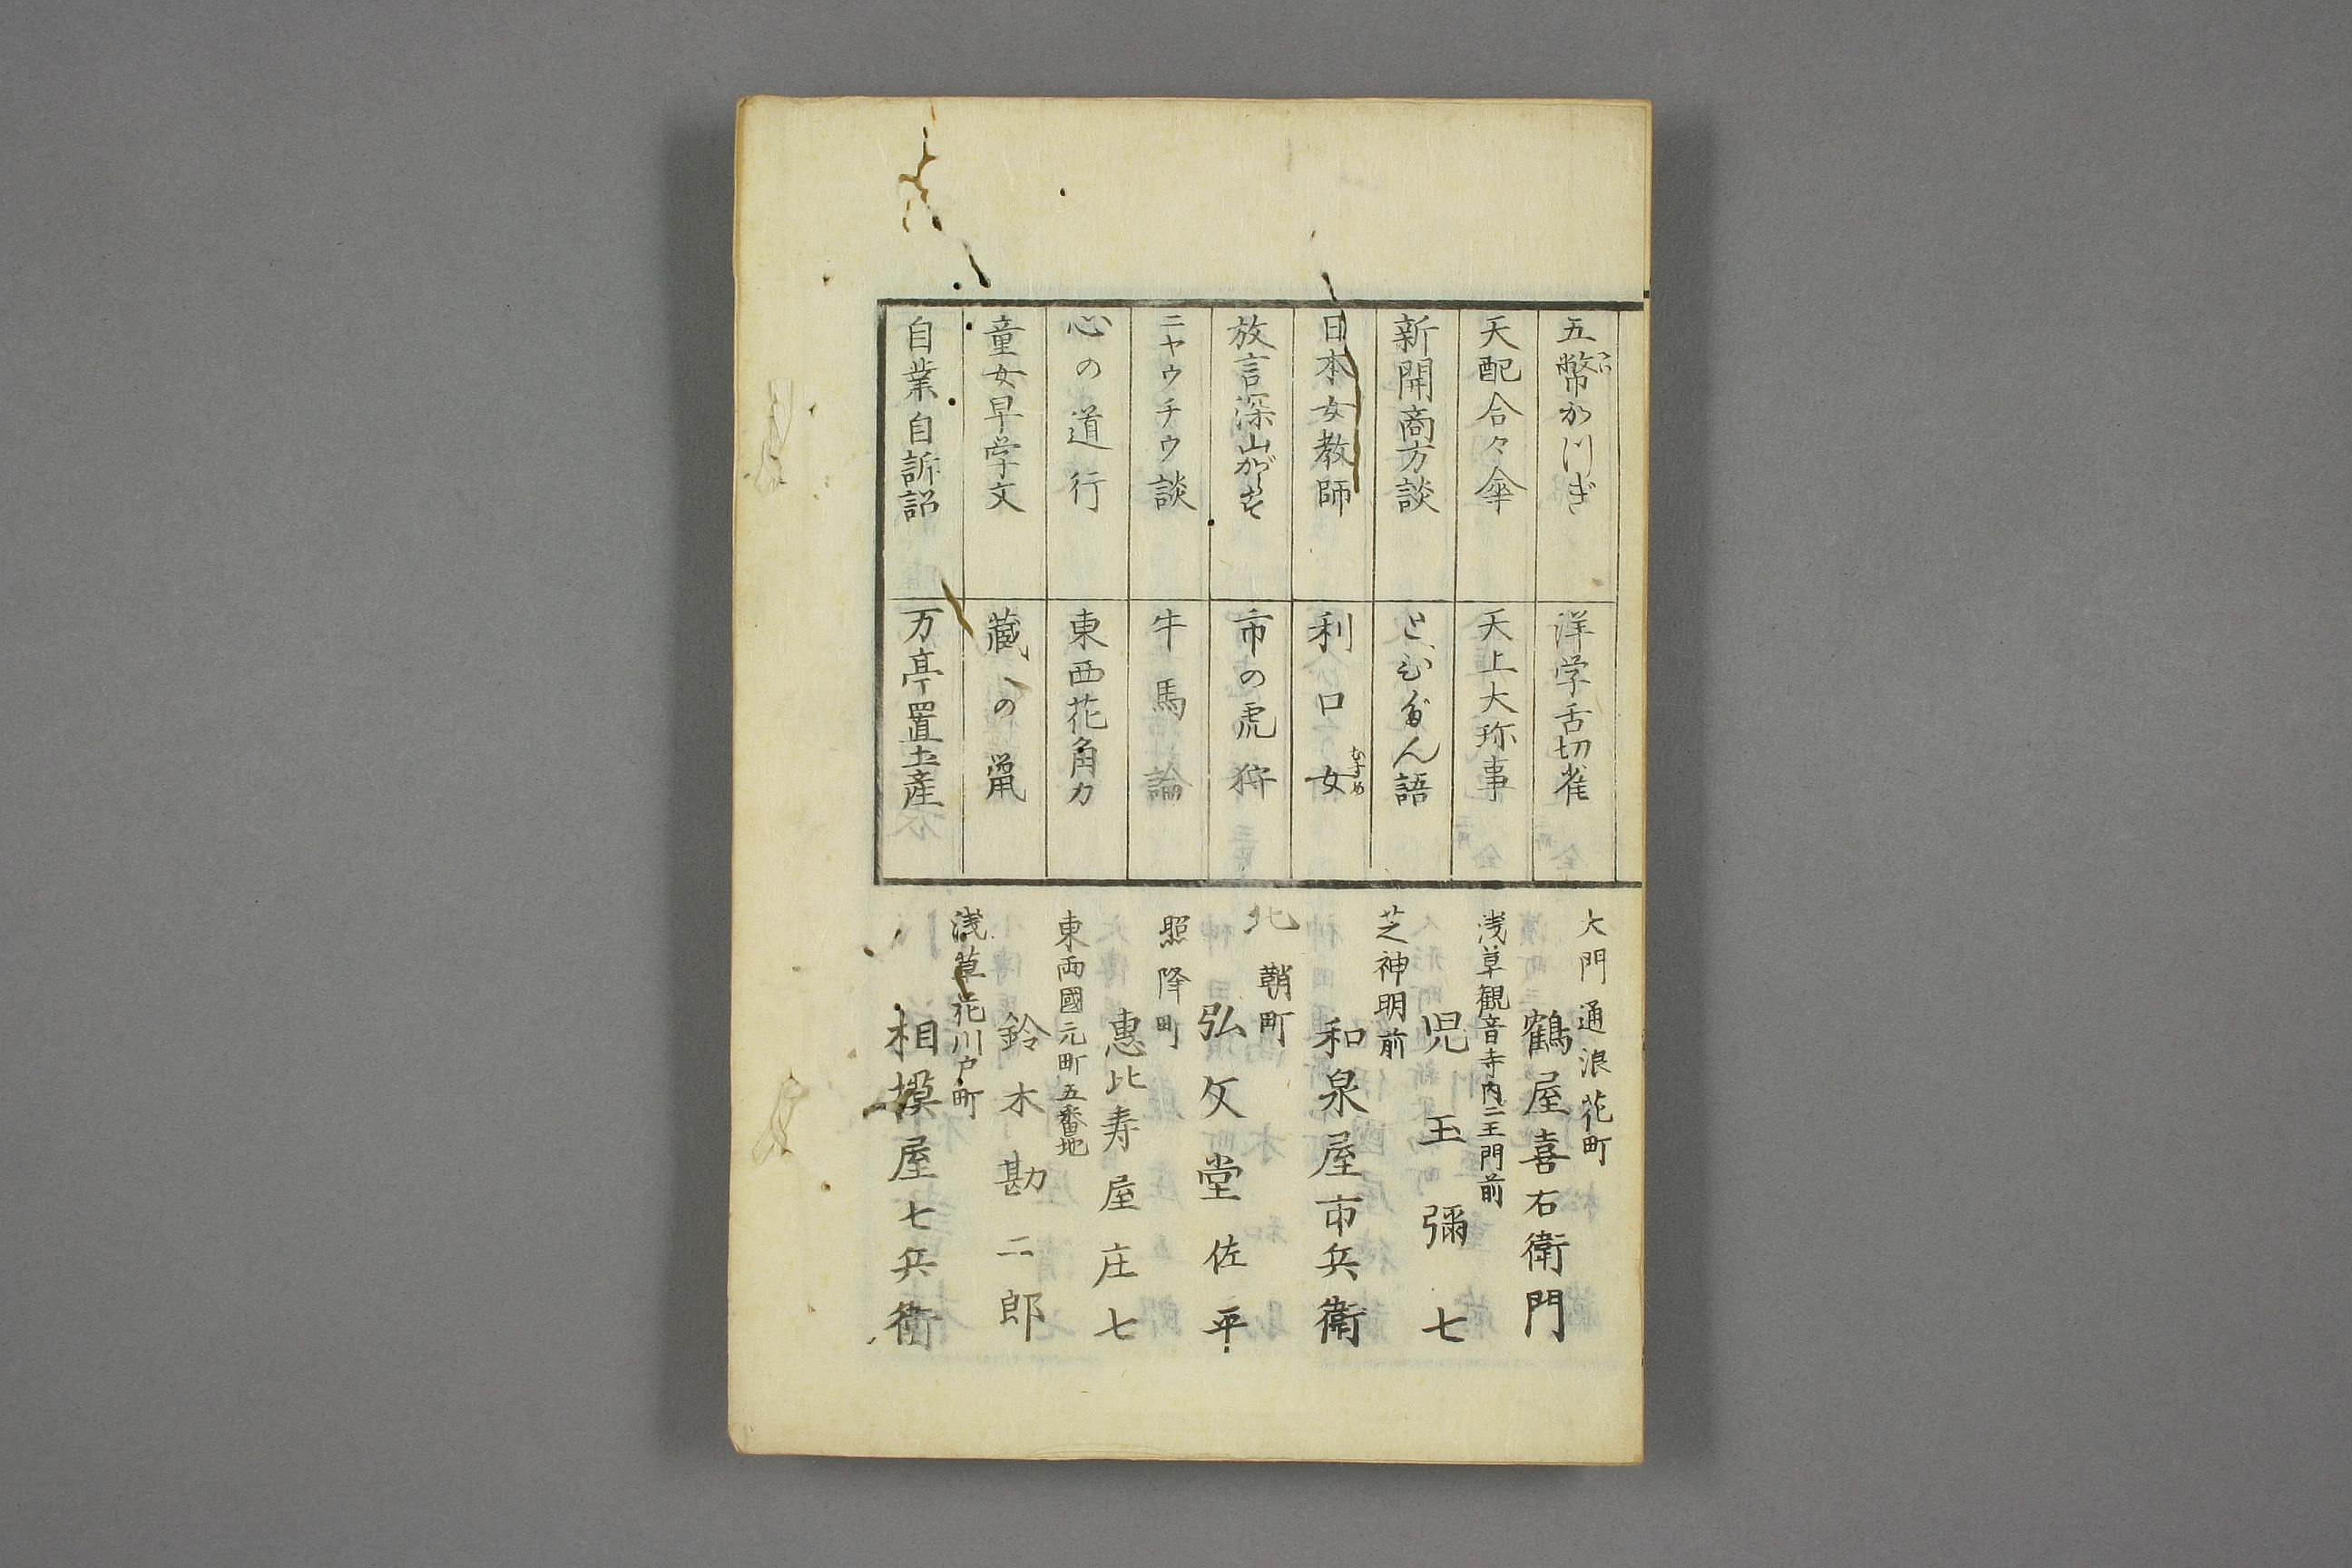 五幣かつぎ
天配合々傘
新開商方談
日本女教師
放言深山がらす
ニヤウチウ談
心の道行
童女早学文
自業自訴詔
洋学舌切雀
天上大珎事
とむだん語
利口女
むすめ
市の虎狩
牛馬論
東西花角力
蔵の鼠
万亭置土産
大門通浪花町
鶴屋喜右衛門
浅草観音寺内二王門前
児玉彌七
芝神明前
和泉屋市兵衛
北鞘町
弘文堂佐平
照降町
惠比寿屋庄七
東両國元町五番地
鈴木勘二郎
浅草花川戸町
相摸屋七兵衛